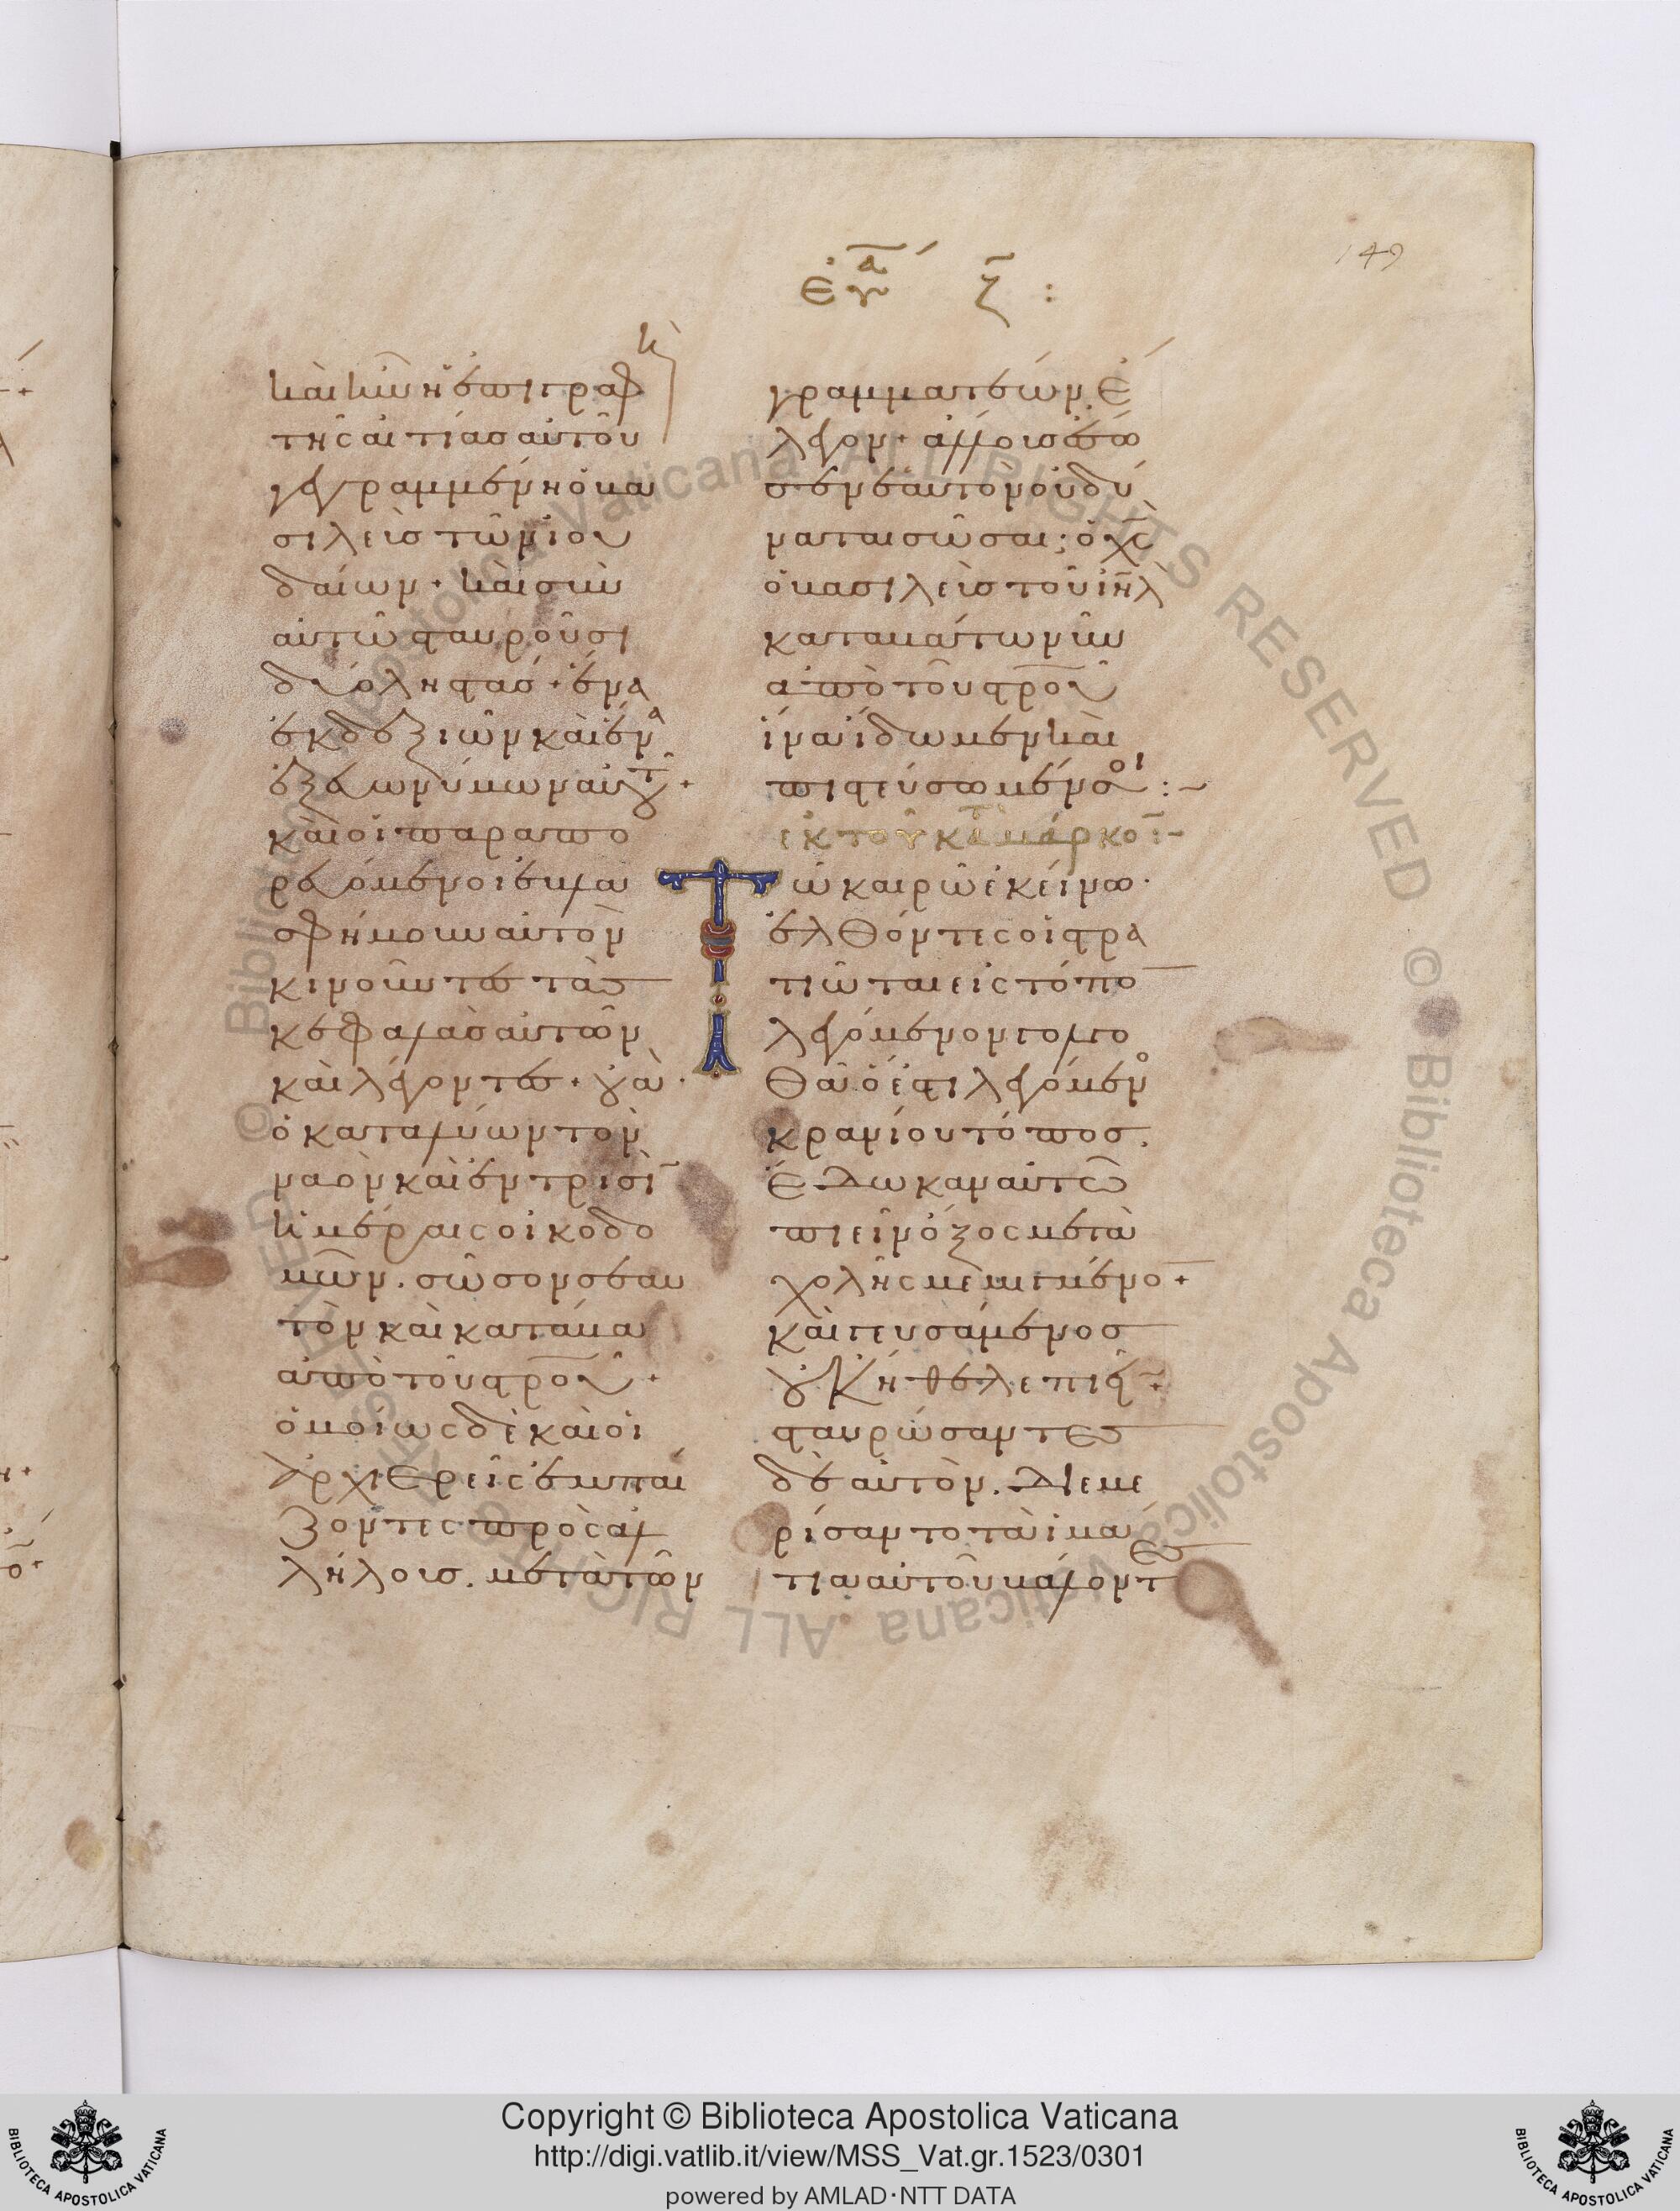 149
ευα ζ :
και ην η επιγραφη
της αιτίας αυτοῦ
γεγραμμένη ὁ βα
σιλεὺς τῶν ιου
δαίων · και σὺν
αὐτῶ σταυροῦσι
δύο λῃστάς · ἕνα
ἐκ δεξιῶν και ἕνα
ἐξ εὐωνύμων αὐτοῦ ·
και οἱ παραπο
ρευόμενοι ἐβλα
σφήμουν αὐτὸν
κινοῦντες τὰς
κεφαλὰς αὐτῶν
και λέγοντες · οὐὰ ·
ὁ καταλύων τὸν
ναὸν και ἐν τρισὶν
ἡμέραις οἰκοδο
μῶν . σῶσον σεαυ
τὸν και κατάβα
ἀπὸ τοῦ στρου ·
ὁμοίως δὲ και οἱ
ἀρχιερεῖς ἐμπαί
ζοντες πρὸς ἀλ
λήλοις . μετὰ τῶν
γραμματέων . ἔ
λεγον · ἄλλους ἔσω
σεν ἑαυτὸν οὐ δύ
ναται σῶσαι ; ὁ χς
ὁ βασιλεὺς τοῦ ιηλ
καταβάτω νῦν
ἀπὸ τοῦ στρου
ἵνα ἴδωμεν και
πιστεύσωμεν αὐτῶ :~
ἐκ τοῦ κατὰ μάρκον :~
Τῶ καιρῶ ἐκείνω ·
ἐλθόντες οἱ στρα
τιῶται εἰς τόπον
λεγόμενον γολγο
θᾶ ὅ ἐστι λεγόμενον
κρανίου τόπος .
ἔδωκαν αὐτῶ
πιεῖν ὄξος μετὰ
χολῆς μεμιγμένον ·
και γευσάμενος
οὐκ ἤθελε πιεῖν ·
σταυρώσαντες
δὲ αὐτὸν . Διεμε
ρίσαντο τὰ ἱμά
τια αὐτοῦ βάλοντες
Copyright © Biblioteca Apostolica Vaticana
http://digi.vatlib.it/view/MSS_Vat.gr.1523/0301
powered by AMLAD·NTT DATA
BIBLIOTECA APOSTOLICA VATICANA
BIBLIOTECA APOSTOLICA VATICANA
© Biblioteca Apostolica Vaticana ALL RIGHTS RESERVED
© Biblioteca Apostolica Vaticana ALL RIGHTS RESERVED